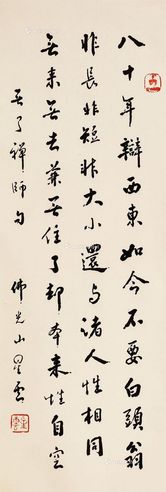 八十年辯西東如今不要白頭翁
非長非短非大小還與諸人性相同
無來無去兼無住了却本來性自空
無了禪師句
佛光山星雲